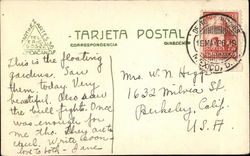 TARJETA POSTAL
CORRESPONDENCIA
DIRECCION
This is the floating
gardens. Saw
them today. Very
beautiful. Also saw
the bull fight. Once
was enough for
me tho. They are
cruel. Write soon
love to both - Jane
Mrs. W. N. Higgs
1632 Milvia St.
Berkeley, Calif.
U.S.A